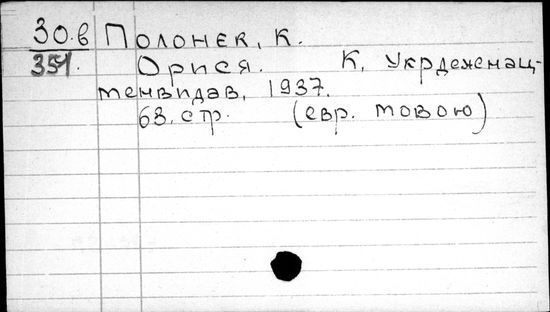 30.в Полонек, К.
351. Орися. К, Укрдежнац-
менвидав, 1937.
63. стр. (евр. мовою)